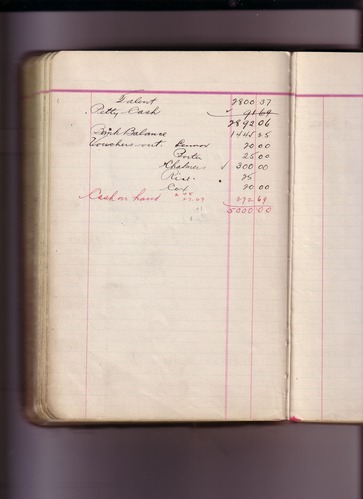 Talent 2800 37
Petty Cash 91 69
2892 06
Bank Balance 1445 25
Vouchers out Connor 20 00
Porter 25 00
Khalmers √ 300 00
Rise 25
Cox 20 00
Cash on hand 27.69 272 69
5000 00